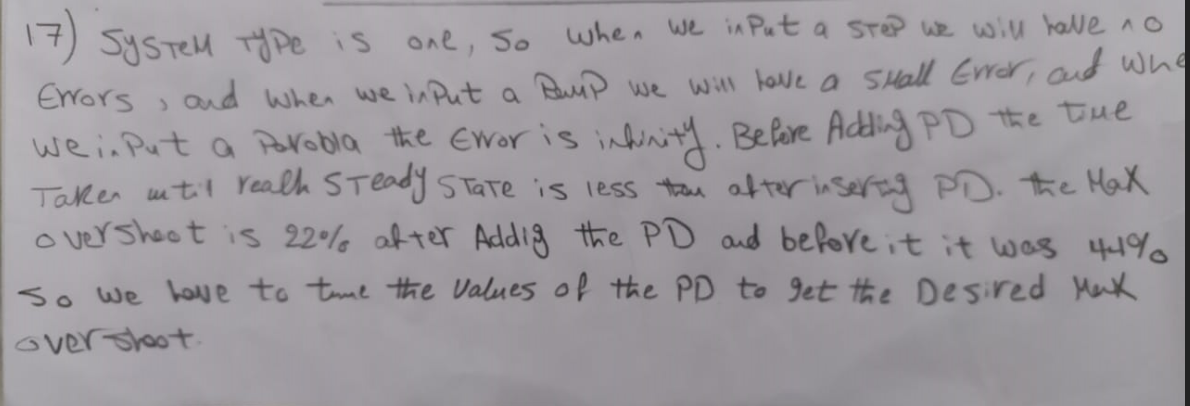 17) System Type is one, So when we input a step we will have no
Errors, and when we input a Ramp we will have a small Error, and whe
we input a Parobla the Error is infinity. Before Adding PD the time
Taken until reach steady state is less than after inserting PD. the Max
overshoot is 22% after Addig the PD and before it it was 44%
So we have to tune the values of the PD to get the Desired Max
overshoot.